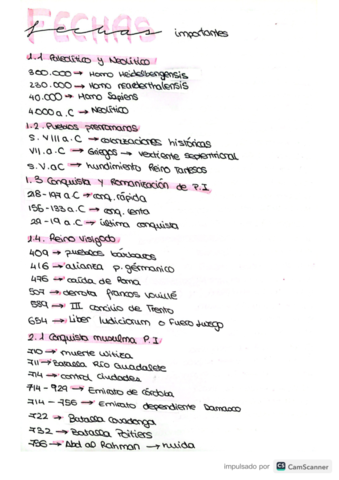 FECHAS
fechas importantes
1.1 Paleolítico y Neolítico
300.000 → Homo Heidelbergensis
230.000 → Homo neaderthalensis
40.000 → Homo Sapiens
4000 a.C → Neolítico
1.2. Pueblos prerromanos
S. VIII a.C → colonizaciones históricas
VII.a.C → Griegos → vertiente septentrional
S.V.aC → hundimiento Reino Tartesos
1.3 Conquista y Romanización de P.I
218-197 a.C → conq. rápida
156-133 a.C → conq. lenta
29-19 a.C → última conquista
1.4. Reino Visigodo
409 → pueblos bárbaros
416 → alianza p. germánico
476 → caída de Roma
507 → derrota francos vouillé
589 → III concilio de Trento
654 → Liber Iudiciorum o Fuero Juzgo
2.1 Conquista musulma P.I
710 → muerte witiza
711 → Batalla Río Guadalete
714 → control ciudades
714 - 929 → Emirato de córdoba
714 - 756 → Emirato dependiente Damasco
722 → Batalla covadonga
732 → Batalla Poitiers
756 → Abd al Rahman → huida
impulsado por CS CamScanner